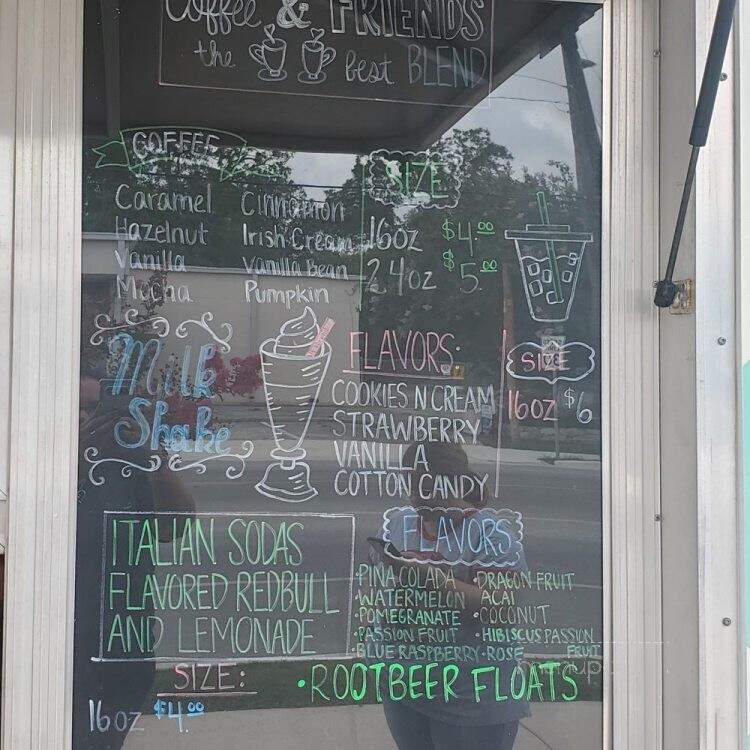 Coffee & FRIENDS
the best BLEND
COFFEE
Caramel Cinnamon
Hazelnut Irish Cream
Vanilla Vanilla Bean
Mocha Pumpkin
SIZE
16oz $4.00
24oz $5.00
Milk
Shake
FLAVORS:
COOKIES N CREAM
STRAWBERRY
VANILLA
COTTON CANDY
SIZE
16oz $6
ITALIAN SODAS
FLAVORED REDBULL
AND LEMONADE
FLAVORS
·PINA COLADA ·DRAGON FRUIT
·WATERMELON ACAI
·POMEGRANATE ·COCONUT
·PASSION FRUIT ·HIBISCUS PASSION FRUIT
·BLUE RASPBERRY ·ROSE
SIZE:
16oz $4.00
·ROOTBEER FLOATS